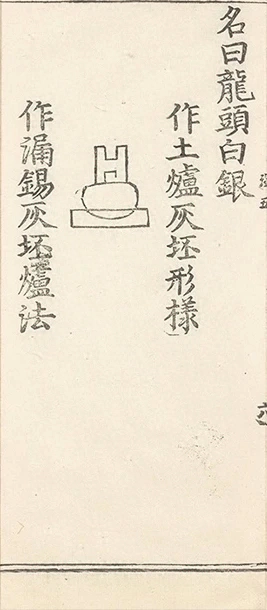 名曰龍頭白銀
作土爐灰坯形樣
作漏錫灰坯爐法